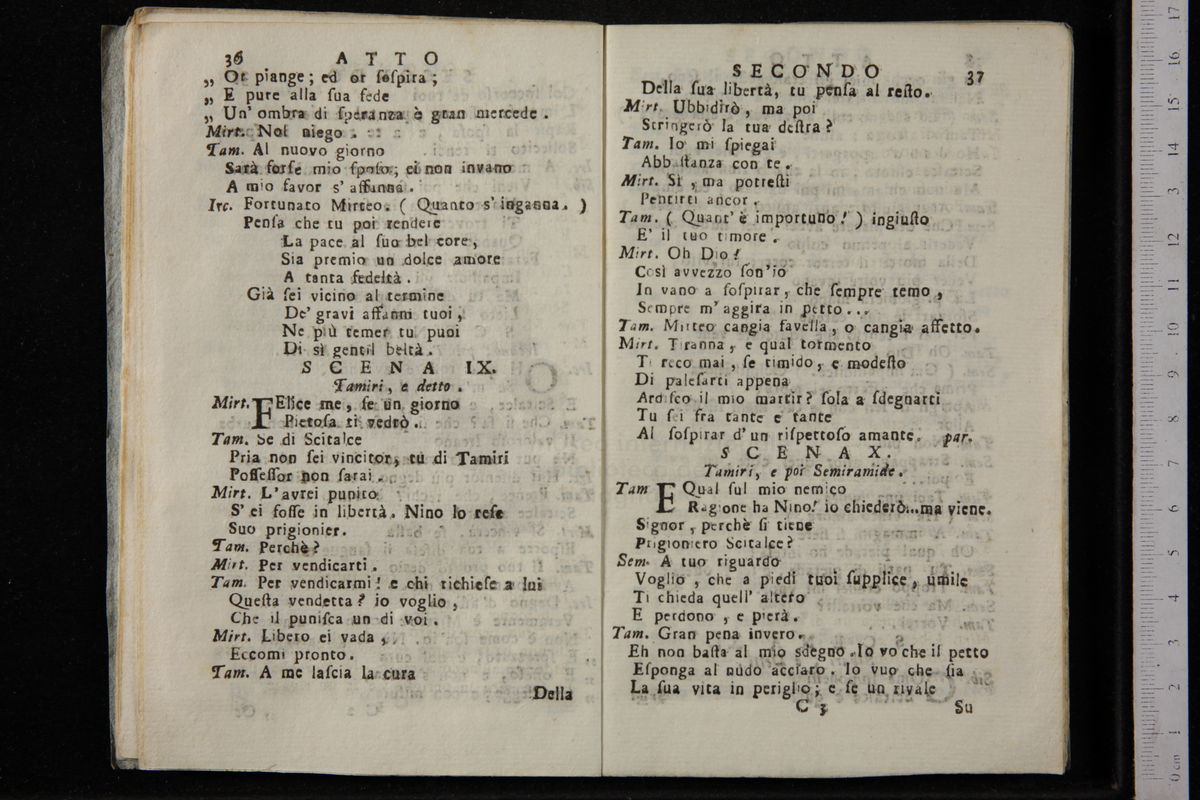 36 ATTO
„ Or piange; ed or ſoſpira;
„ E pure alla ſua fede
„ Un' ombra di ſperanza è gran mercede.
Mirt. Nol niego.
Tam. Al nuovo giorno
Sarà forſe mio ſpoſo; ei non invano
A mio favor s' affanna.
Irc. Fortunato Mirteo. ( Quanto s' inganna. )
Penſa che tu poi rendere
La pace al ſuo bel core,
Sia premio un dolce amore
A tanta fedeltà.
Già ſei vicino al termine
De' gravi affanni tuoi,
Ne più temer tu puoi
Di sì gentil beltà.
SCENA IX.
Tamiri, e detto.
Mirt. FElice me, ſe un giorno
Pietoſa ti vedrò.
Tam. Se di Scitalce
Pria non ſei vincitor, tu di Tamiri
Poſſeſſor non ſarai.
Mirt. L' avrei punito
S' ei foſſe in libertà. Nino lo reſe
Suo prigionier.
Tam. Perchè?
Mirt. Per vendicarti.
Tam. Per vendicarmi! e chi richieſe a lui
Queſta vendetta? io voglio,
Che il puniſca un di voi.
Mirt. Libero ei vada,
Eccomi pronto.
Tam. A me laſcia la cura
Della
SECONDO 37
Della ſua libertà, tu penſa al reſto.
Mirt. Ubbidirò, ma poi
Stringerò la tua deſtra?
Tam. Io mi ſpiegai
Abbaſtanza con te.
Mirt. Sì, ma potreſti
Pentirti ancor.
Tam. ( Quant' è importuno! ) ingiuſto
E' il tuo timore.
Mirt. Oh Dio!
Così avvezzo ſon' io
In vano a ſoſpirar, che ſempre temo,
Sempre m' aggira in petto...
Tam. Mirteo cangia favella, o cangia affetto.
Mirt. Tiranna, e qual tormento
Ti reco mai, ſe timido, e modeſto
Di paleſarti appena
Ardiſco il mio martir? ſola a ſdegnarti
Tu ſei fra tante e tante
Al ſoſpirar d' un riſpettoſo amante. par.
SCENA X.
Tamiri, e poi Semiramide.
Tam EQual ſul mio nemico
Ragione ha Nino! io chiederò...ma viene.
Signor, perchè ſi tiene
Prigioniero Scitalce?
Sem. A tuo riguardo
Voglio, che a piedi tuoi ſupplice, umile
Ti chieda quell' altero
E perdono, e pietà.
Tam. Gran pena invero.
Eh non baſta al mio sdegno. Io vo che il petto
Eſponga al nudo acciaro. Io vuo che ſia
La ſua vita in periglio; e ſe un rivale
C 3 Su